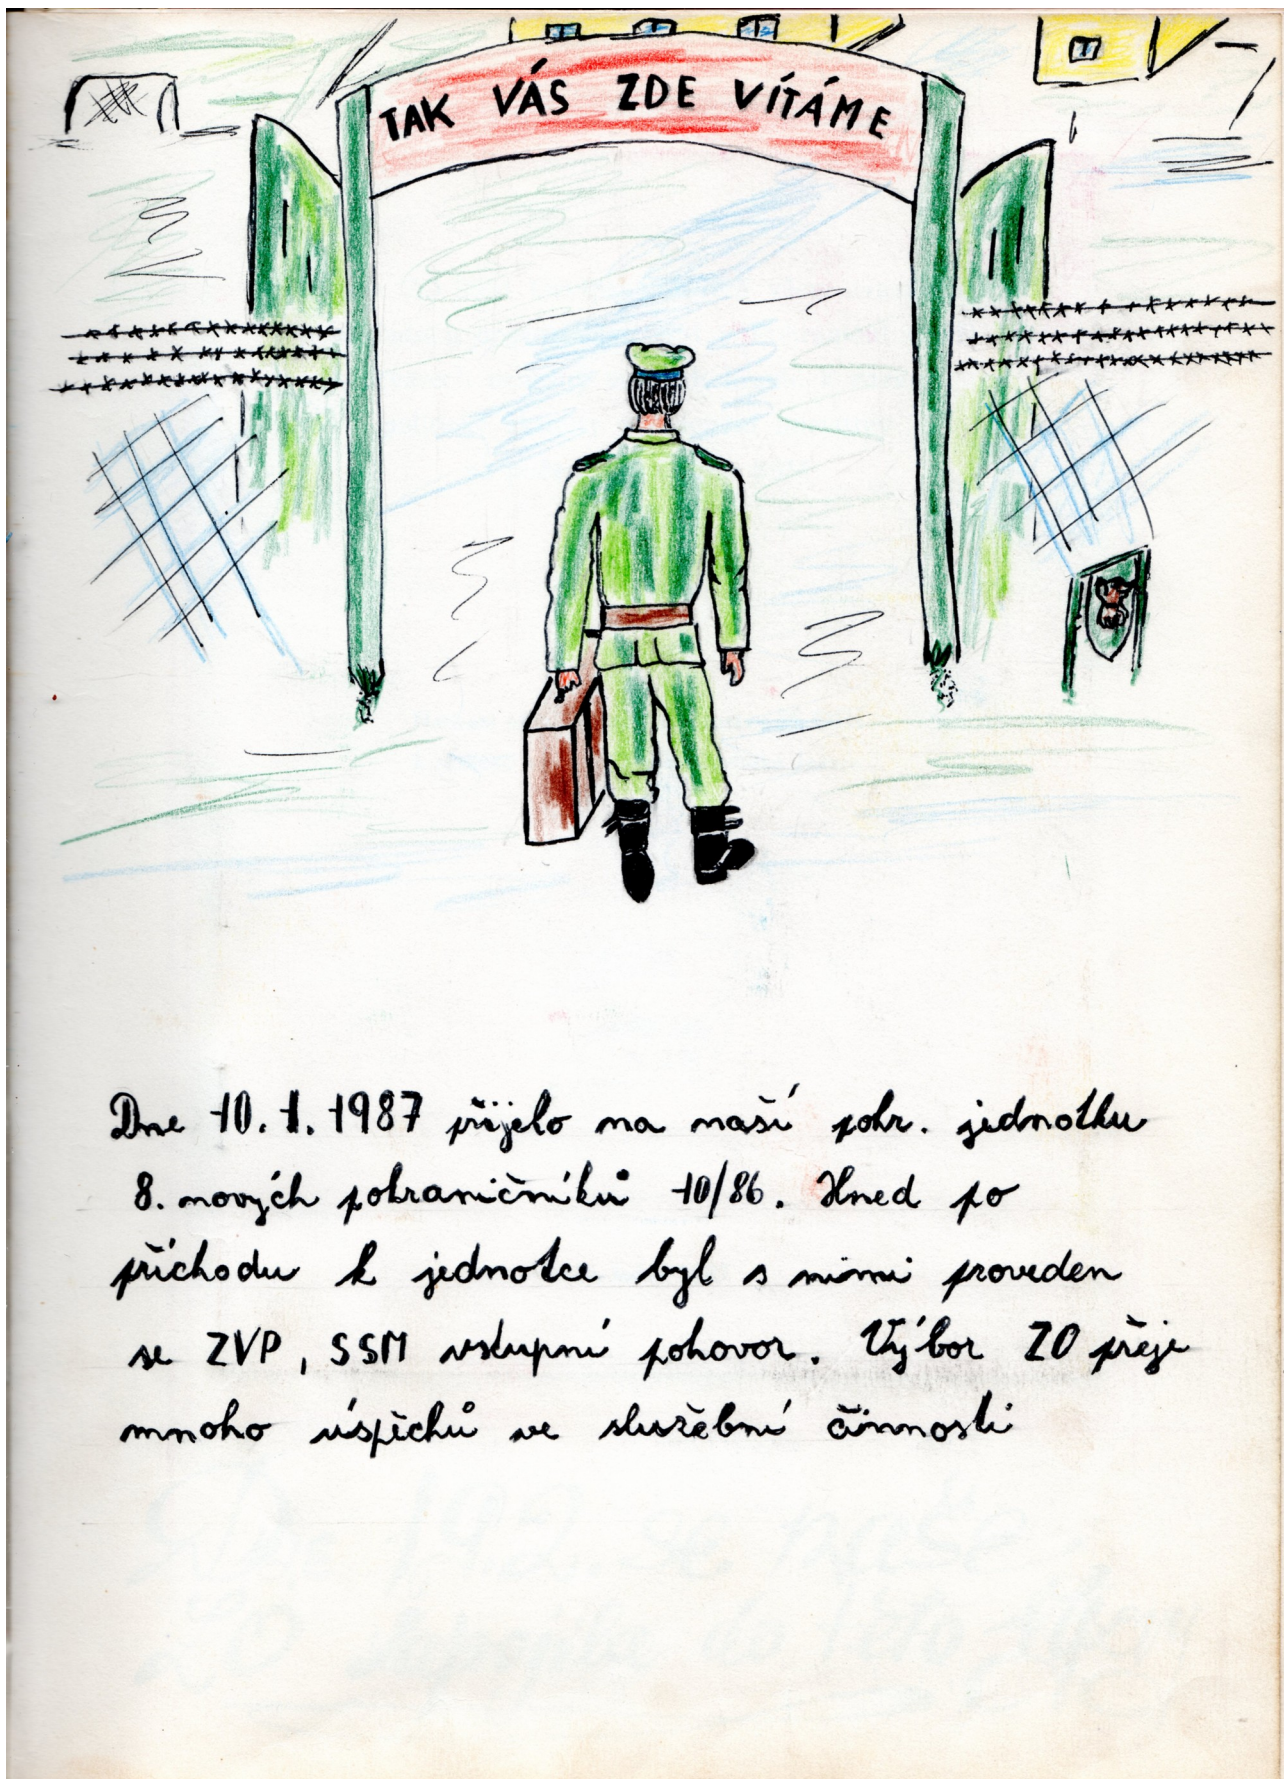 TAK VÁS ZDE VÍTÁME
Dne 10. 1. 1987 přijelo na naší pohr. jednotku
8. nových pohraničníků 10/86. Hned po
příchodu k jednotce byl s nimi proveden
se ZVP, SSM vstupní pohovor. Výbor ZO přeje
mnoho úspěchů ve služební činnosti